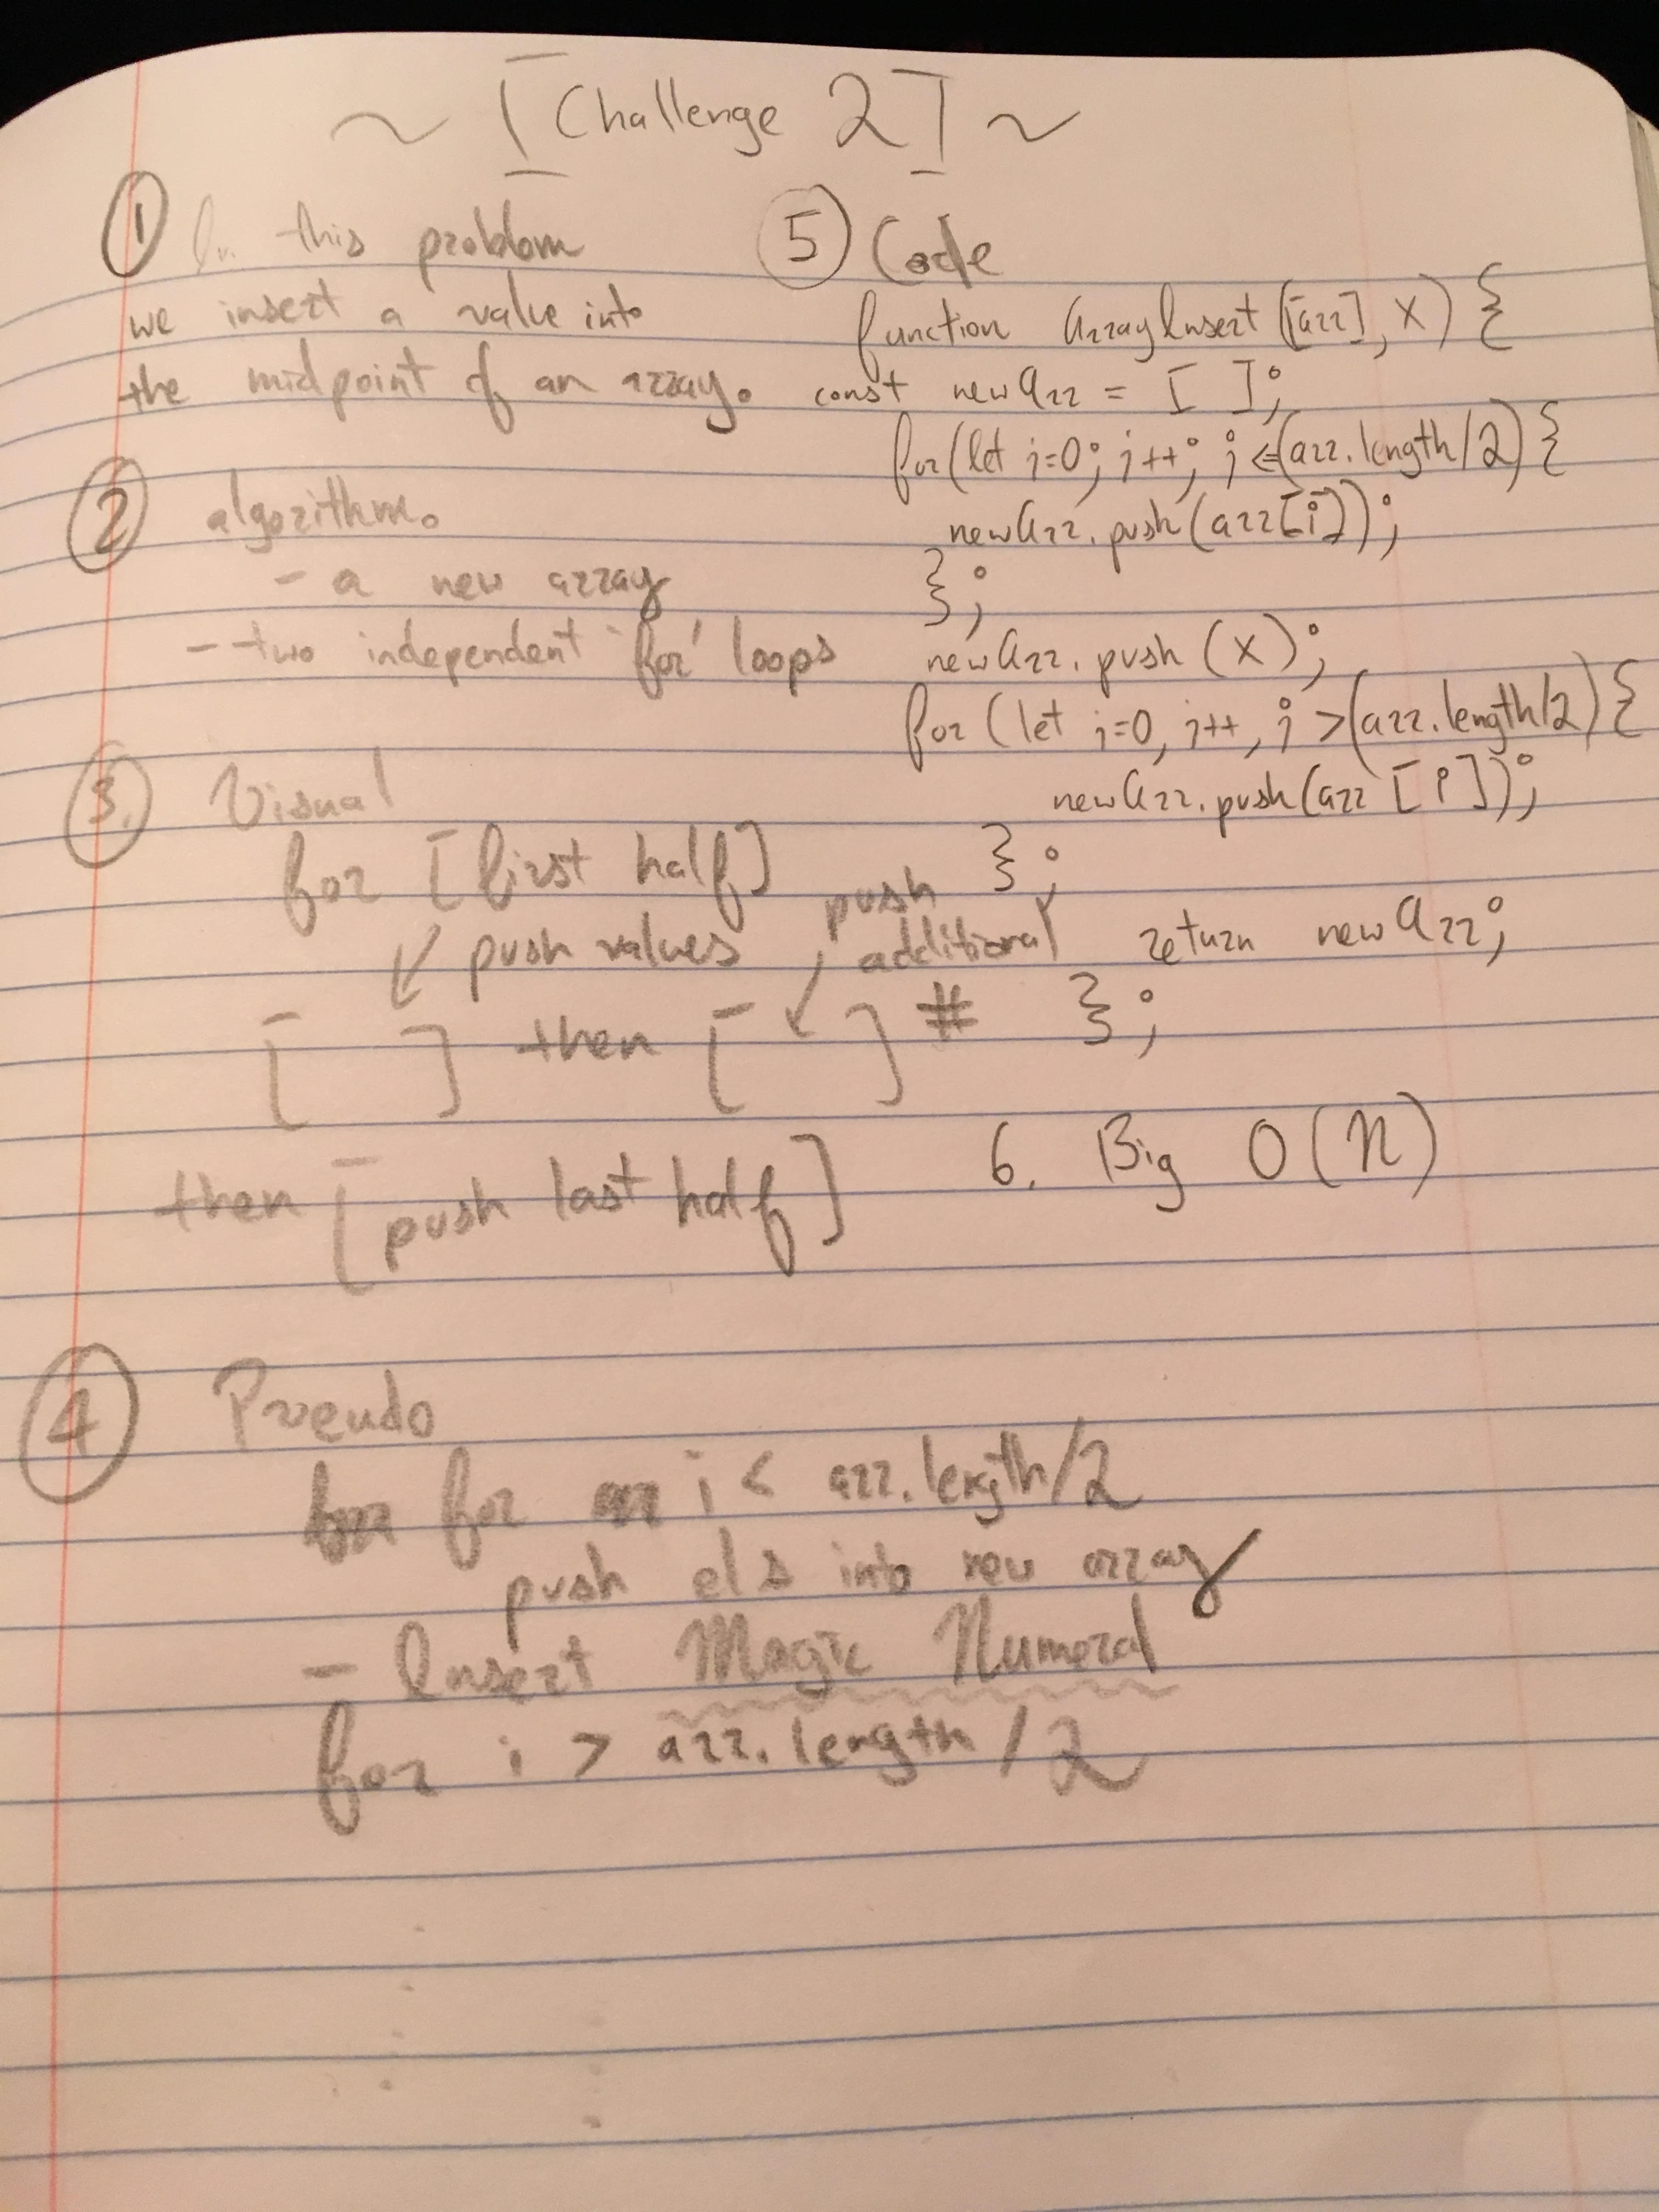 ~ [Challenge 2] ~
① In this problem
we insert a value into
the midpoint of an array.
② algorithm.
- a new array
- two independent 'for' loops
3. Visual
for [first half]
push values
push
additional
[ ] then [ ] #
then [push last half]
④ Pseudo
for i < arr.length/2
push els into new array
- Insert Magic Numeral
for i > arr.length/2
⑤ Code
function ArrayInsert([arr], x) {
const newArr = [ ];
for(let i=0; i++; i <= (arr.length/2) {
newArr.push(arr[i]);
};
newArr.push(x);
for (let i=0, i++, i > (arr.length/2) {
newArr.push(arr[i]);
};
return newArr;
};
6. Big O(n)